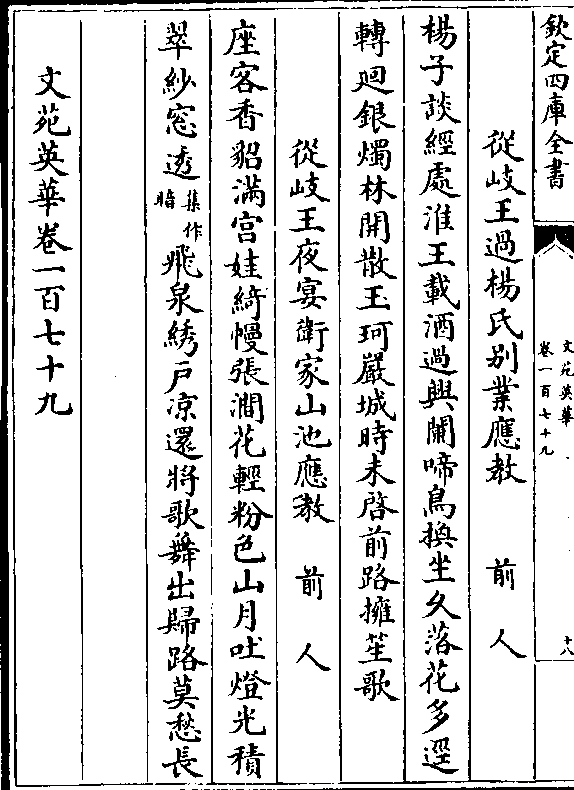 欽定四庫全書
文苑英華
卷一百七十九
十八
從岐王過楊氏别業應教 前人
楊子談經處淮王載酒過興闌啼鳥換坐久落花多逕
轉廻銀燭林開散玉珂嚴城時未啓前路擁笙歌
從岐王夜宴衛家山池應教 前人
座客香貂滿宫娃綺幔張澗花輕粉色山月吐燈光積
翠紗窓透集作暗飛泉綉戸凉還將歌舞出歸路莫愁長
文苑英華卷一百七十九